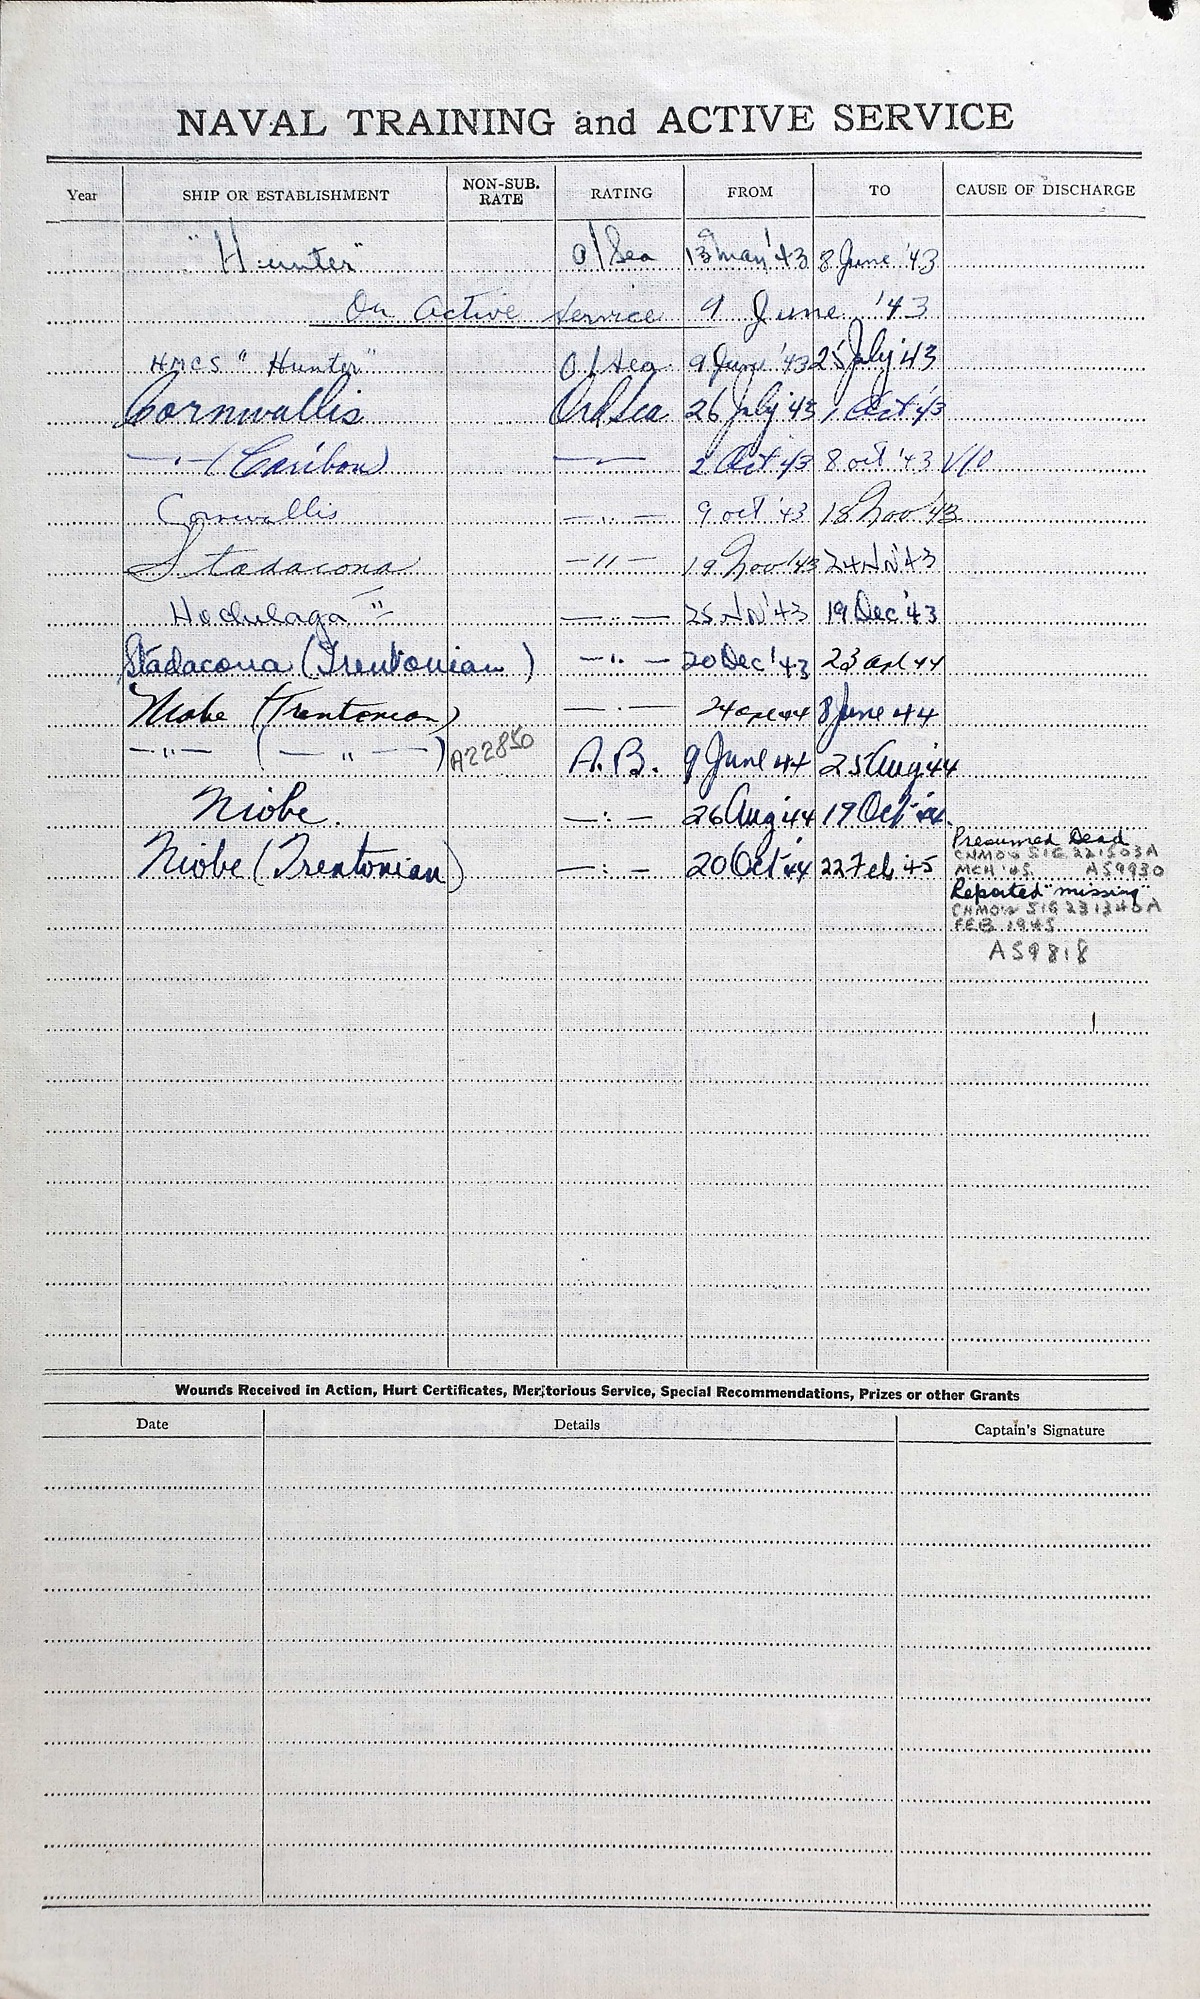 NAVAL TRAINING and ACTIVE SERVICE
Year SHIP OR ESTABLISHMENT NON-SUB. RATE RATING FROM TO CAUSE OF DISCHARGE
"Hunter" O/Sea 13 May '43 8 June '43
On Active Service 9 June '43
HMCS "Hunter" O/Sea 9 June '43 25 July '43
Cornwallis Ord Sea 26 July '43 1 Oct '43
—·— (Caribou) —·— 2 Oct '43 8 Oct '43 V/O
Cornwallis —··— 9 Oct '43 18 Nov '43
Stadacona —"— 19 Nov '43 24 Nov '43
Hochelaga "— —··— 25 Nov '43 19 Dec '43
Stadacona (Trentonian) —··— 20 Dec '43 23 Apl 44
Niobe (Trentonian) —·— 24 Apl 44 8 June 44
—"— ( —"— ) A22850 A.B. 9 June 44 25 Aug '44
Niobe. —:— 26 Aug '44 19 Oct '44.
Niobe (Trentonian) —:— 20 Oct '44 22 Feb 45
Presumed Dead
CNMO'S SIG 221503A
MCH '45 A59930
Reported "missing"
CNMO'S SIG 231340A
FEB 1945
A59818
Wounds Received in Action, Hurt Certificates, Meritorious Service, Special Recommendations, Prizes or other Grants
Date Details Captain's Signature